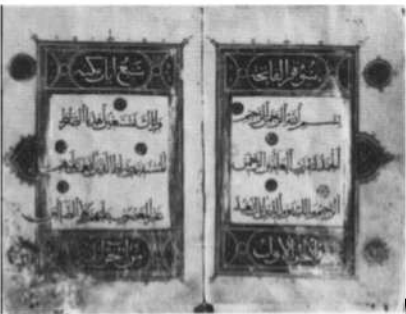 سورة الفاتحة
بسم الله الرحمن الرحيم
الحمد لله رب العالمين الرحمن
الرحيم ملك يوم الدين اياك نعبد
سبع اي مكية
واياك نستعين اهدنا الصراط
المستقيم صراط الذين انعمت عليهم
غير المغضوب عليهم ولا الضالين